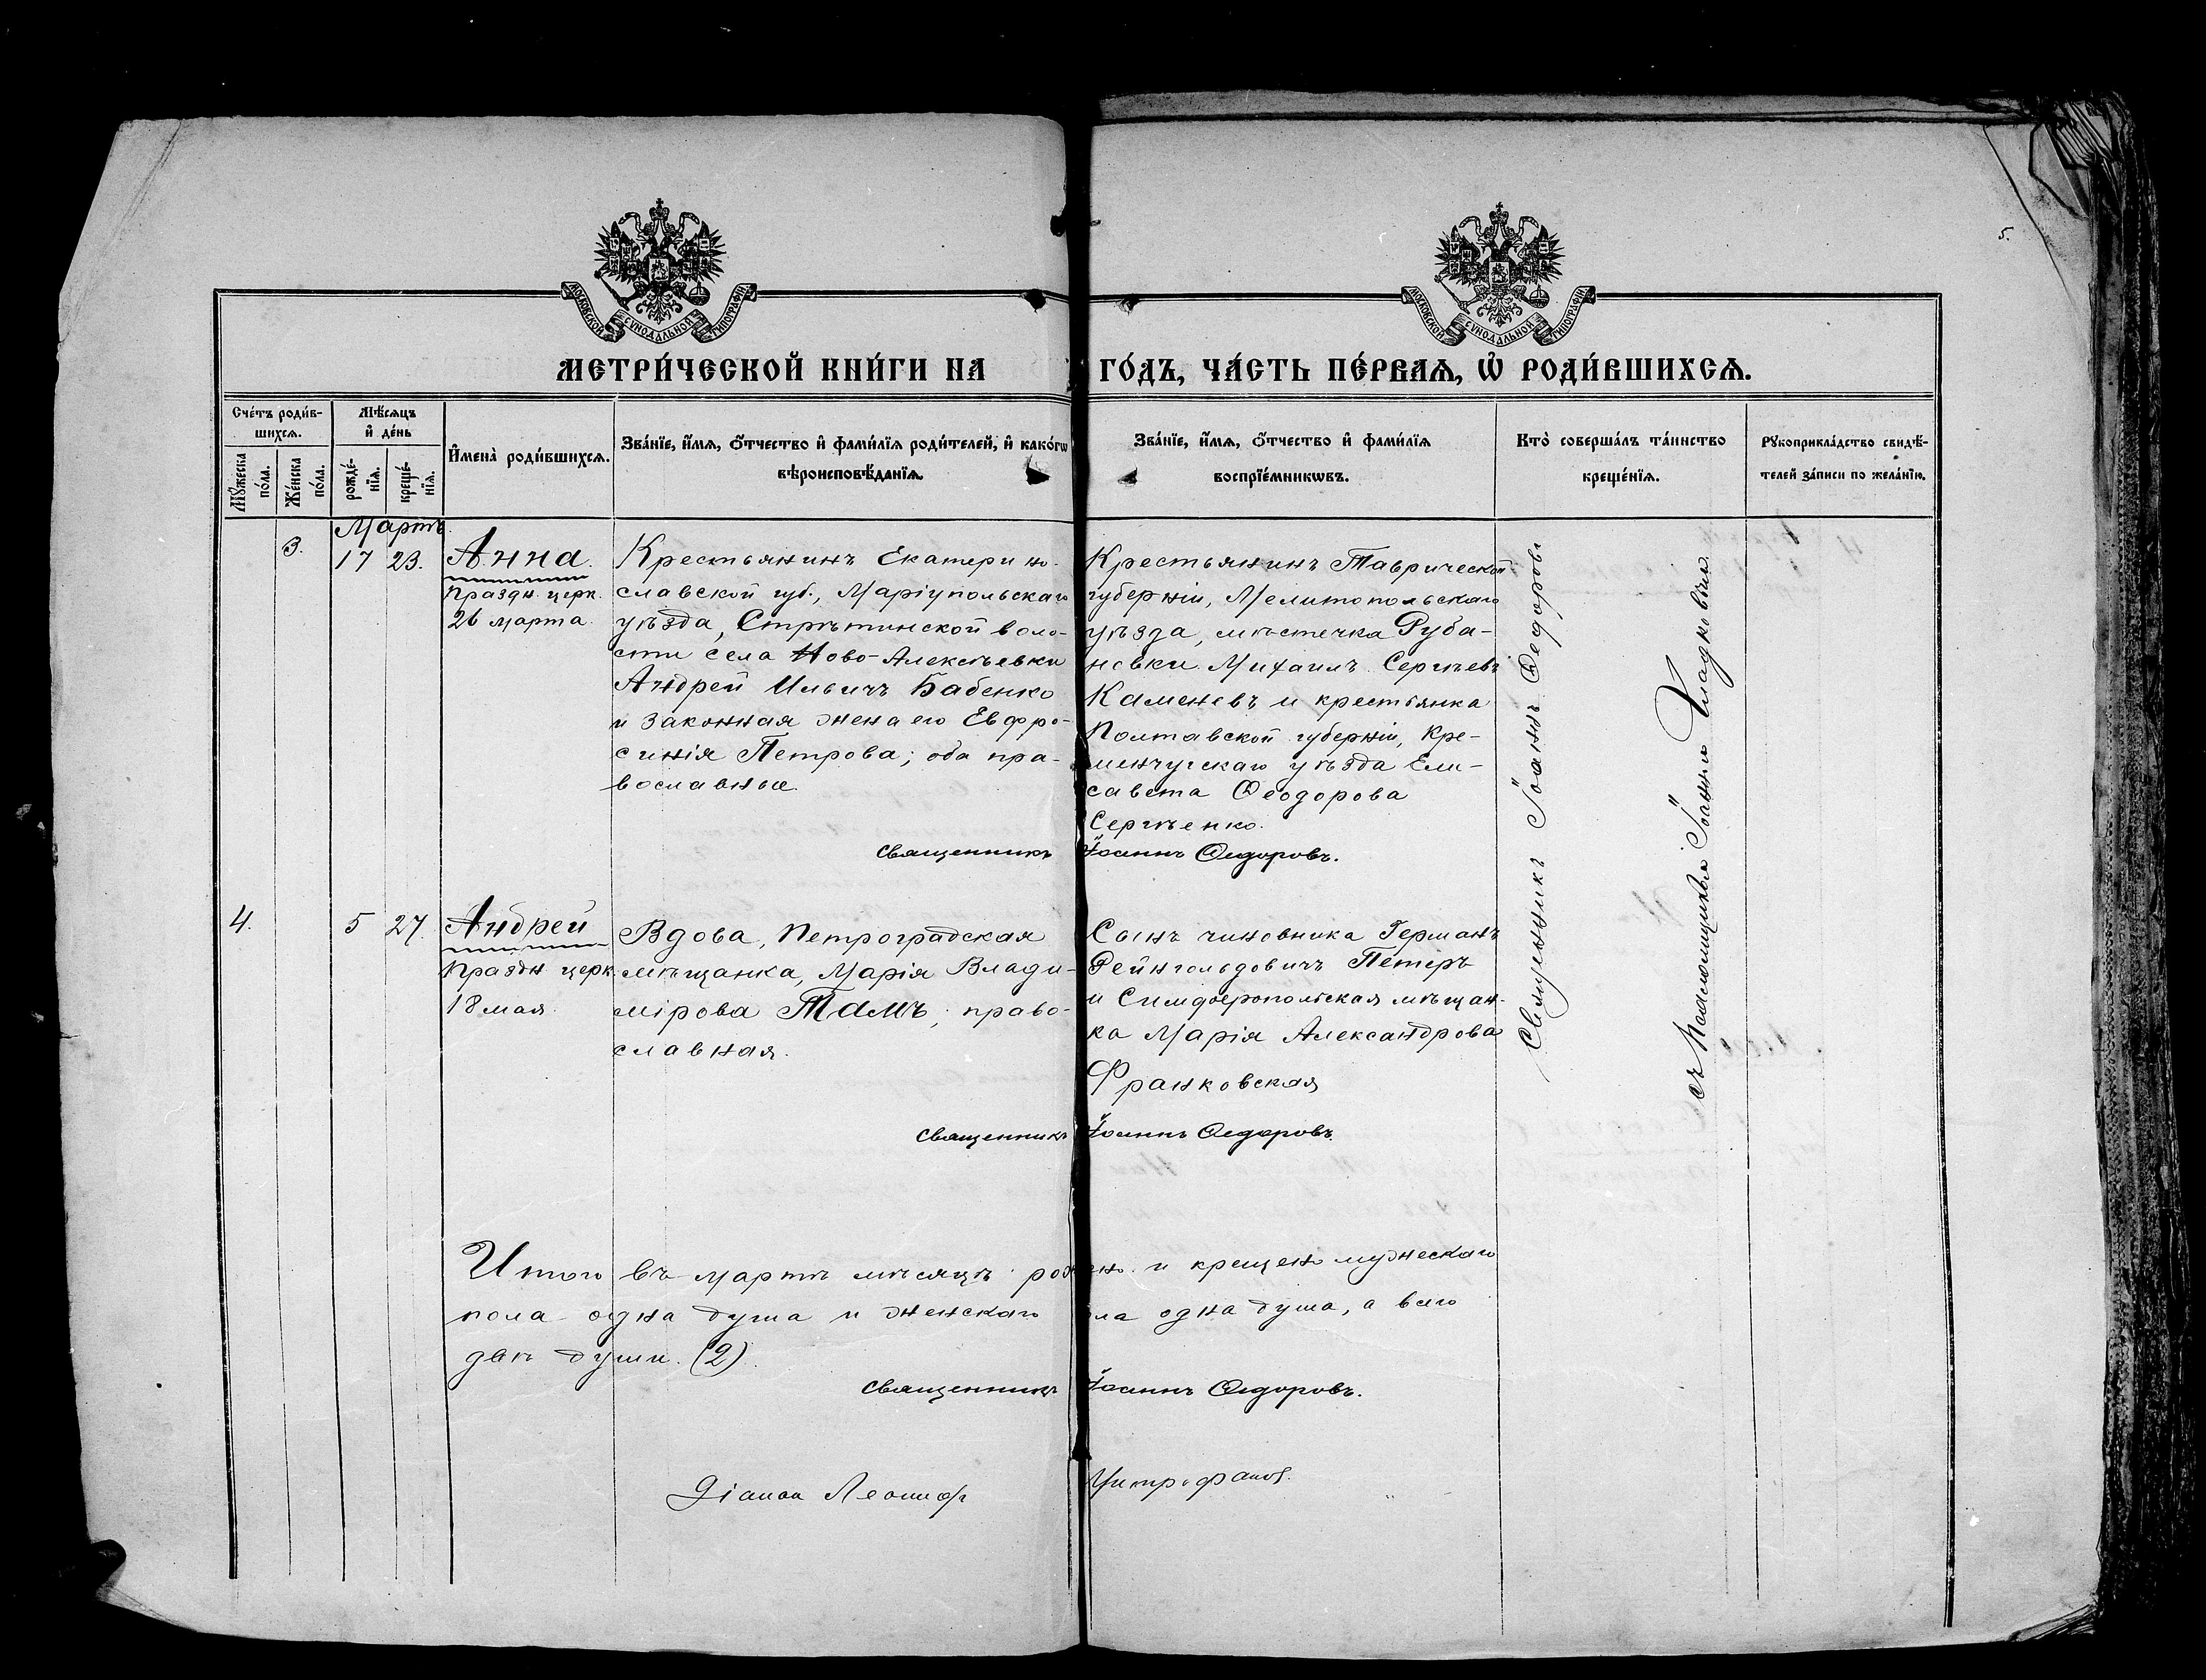 5.
МОСКОВСКОЙ СѴНОДАЛЬНОЙ ТИПОГРАФІИ
МОСКОВСКОЙ СѴНОДАЛЬНОЙ ТИПОГРАФІИ
МЕТРИ́ЧЕСКОЙ КНИ́ГИ НА ГО́ДЪ, ЧА́СТЬ ПЕ́РВАѦ, Ѡ҆ РОДИ́ВШИХСѦ.
Сче́тъ роди́в-
шихсѧ.
Мꙋ́жеска по́ла.
Же́нска по́ла.
Мѣ́сѧцъ
и҆ де́нь
рожде́-
нїѧ.
креще́-
нїѧ.
И҆мена̀ роди́вшихсѧ.
Зва́нїе, и҆́мѧ, ѻ҆́тчество и҆ фами́лїѧ роди́телей, и҆ како́гѡ
вѣроисповѣ́данїѧ.
Зва́нїе, и҆́мѧ, ѻ҆́тчество и҆ фами́лїѧ
воспрїе́мникѡвъ.
Кто̀ соверша́лъ та́инство
креще́нїѧ.
Рꙋкоприкла́дство свидѣ́-
телей за́писи по жела́нїю.
Мартъ.
3.
17 23.
Анна.
Праздн. церк.
26 марта.
Крестьянинъ Екатерино-
славской губ., Маріупольскаго
уѣзда, Стрѣтинской воло-
сти села Ново-Алексѣевки
Андрей Ильичъ Бабенко
и законная жена его Евфро-
синія Петрова; оба пра-
вославные.
Крестьянинъ Таврической
губерніи, Мелитопольскаго
уѣзда, мѣстечка Руба-
новки Михаилъ Сергѣевъ
Каменевъ и крестьянка
Полтавской губерніи, Кре-
менчугскаго уѣзда Ели-
савета Ѳеодорова
Сергѣенко.
Священникъ Іоаннъ Ѳедоровъ.
Священникъ Іоаннъ Ѳедоровъ
съ Псаломщикомъ Іоанномъ Гладковымъ.
4.
5 27.
Андрей
Праздн. церк.
18 мая.
Вдова, Петроградская
мѣщанка, Марія Влади-
мірова Тамъ; право-
славная.
Сынъ чиновника Германъ
Рейнгольдовичъ Петеръ
и Симферопольская мѣщан-
ка Марія Александрова
Франковская
Священникъ Іоаннъ Ѳедоровъ.
Итого въ мартѣ мѣсяцѣ рождено и крещено мужескаго
пола одна душа и женскаго пола одна душа, а всего
двѣ души. (2).
Священникъ Іоаннъ Ѳедоровъ.
Діаконъ Митрофановъ.